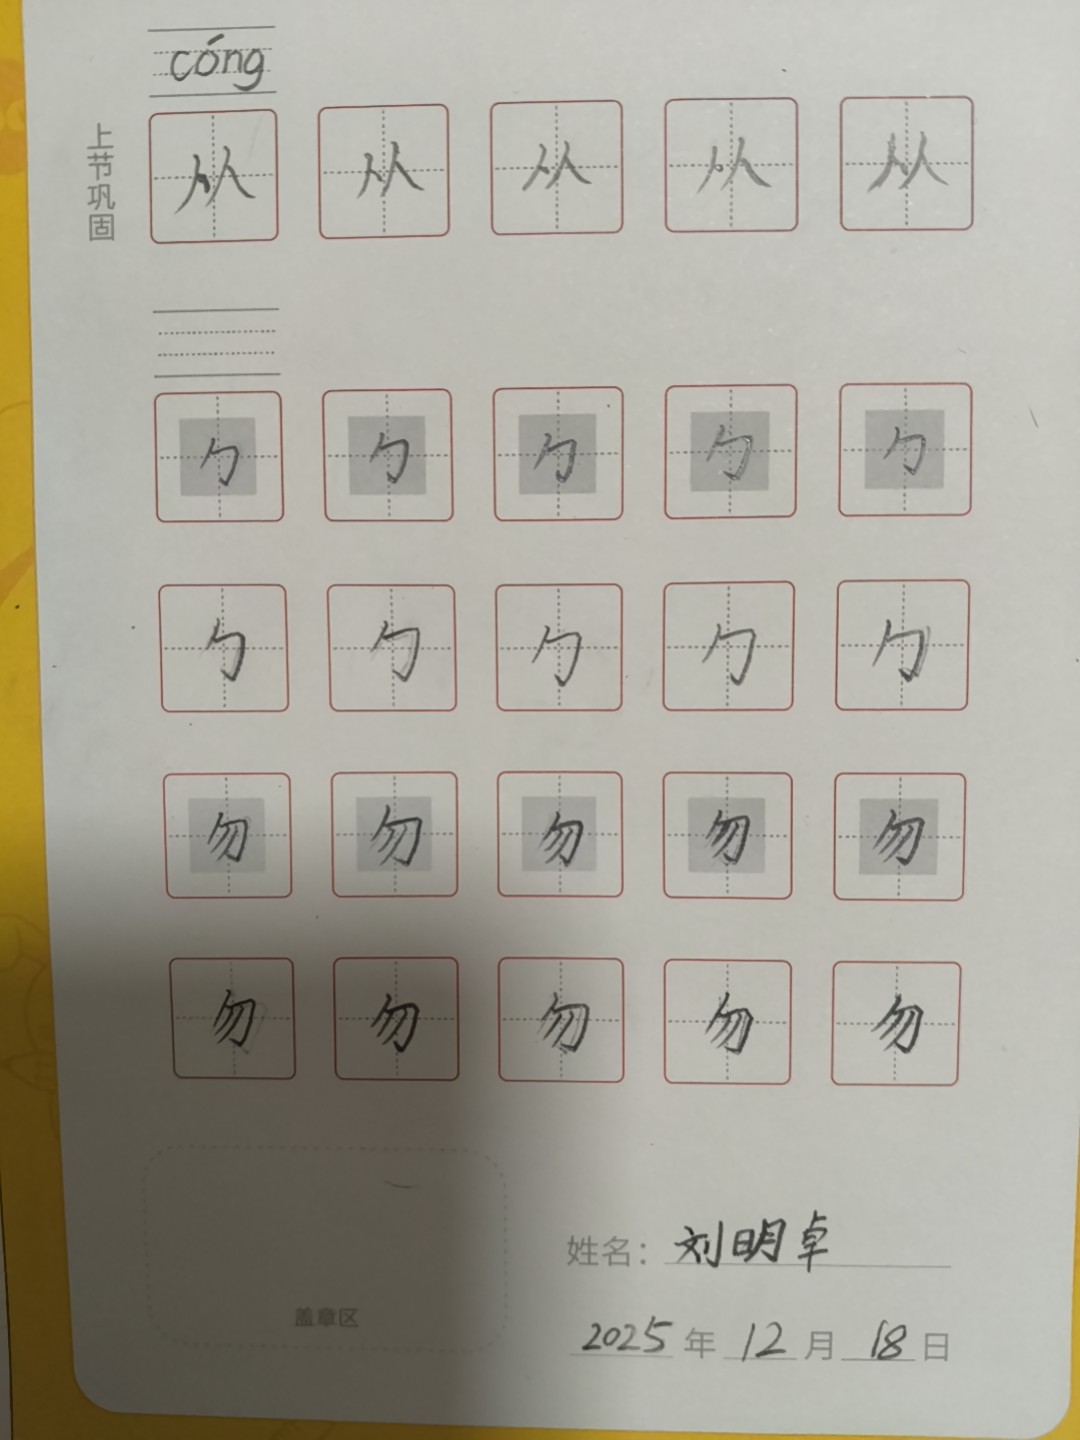 cóng
上节巩固
从 从 从 从 从
勹 勹 勹 勹 勹
勹 勹 勹 勹 勹
勿 勿 勿 勿 勿
勿 勿 勿 勿 勿
姓名：刘明卓
盖章区
2025年12月18日